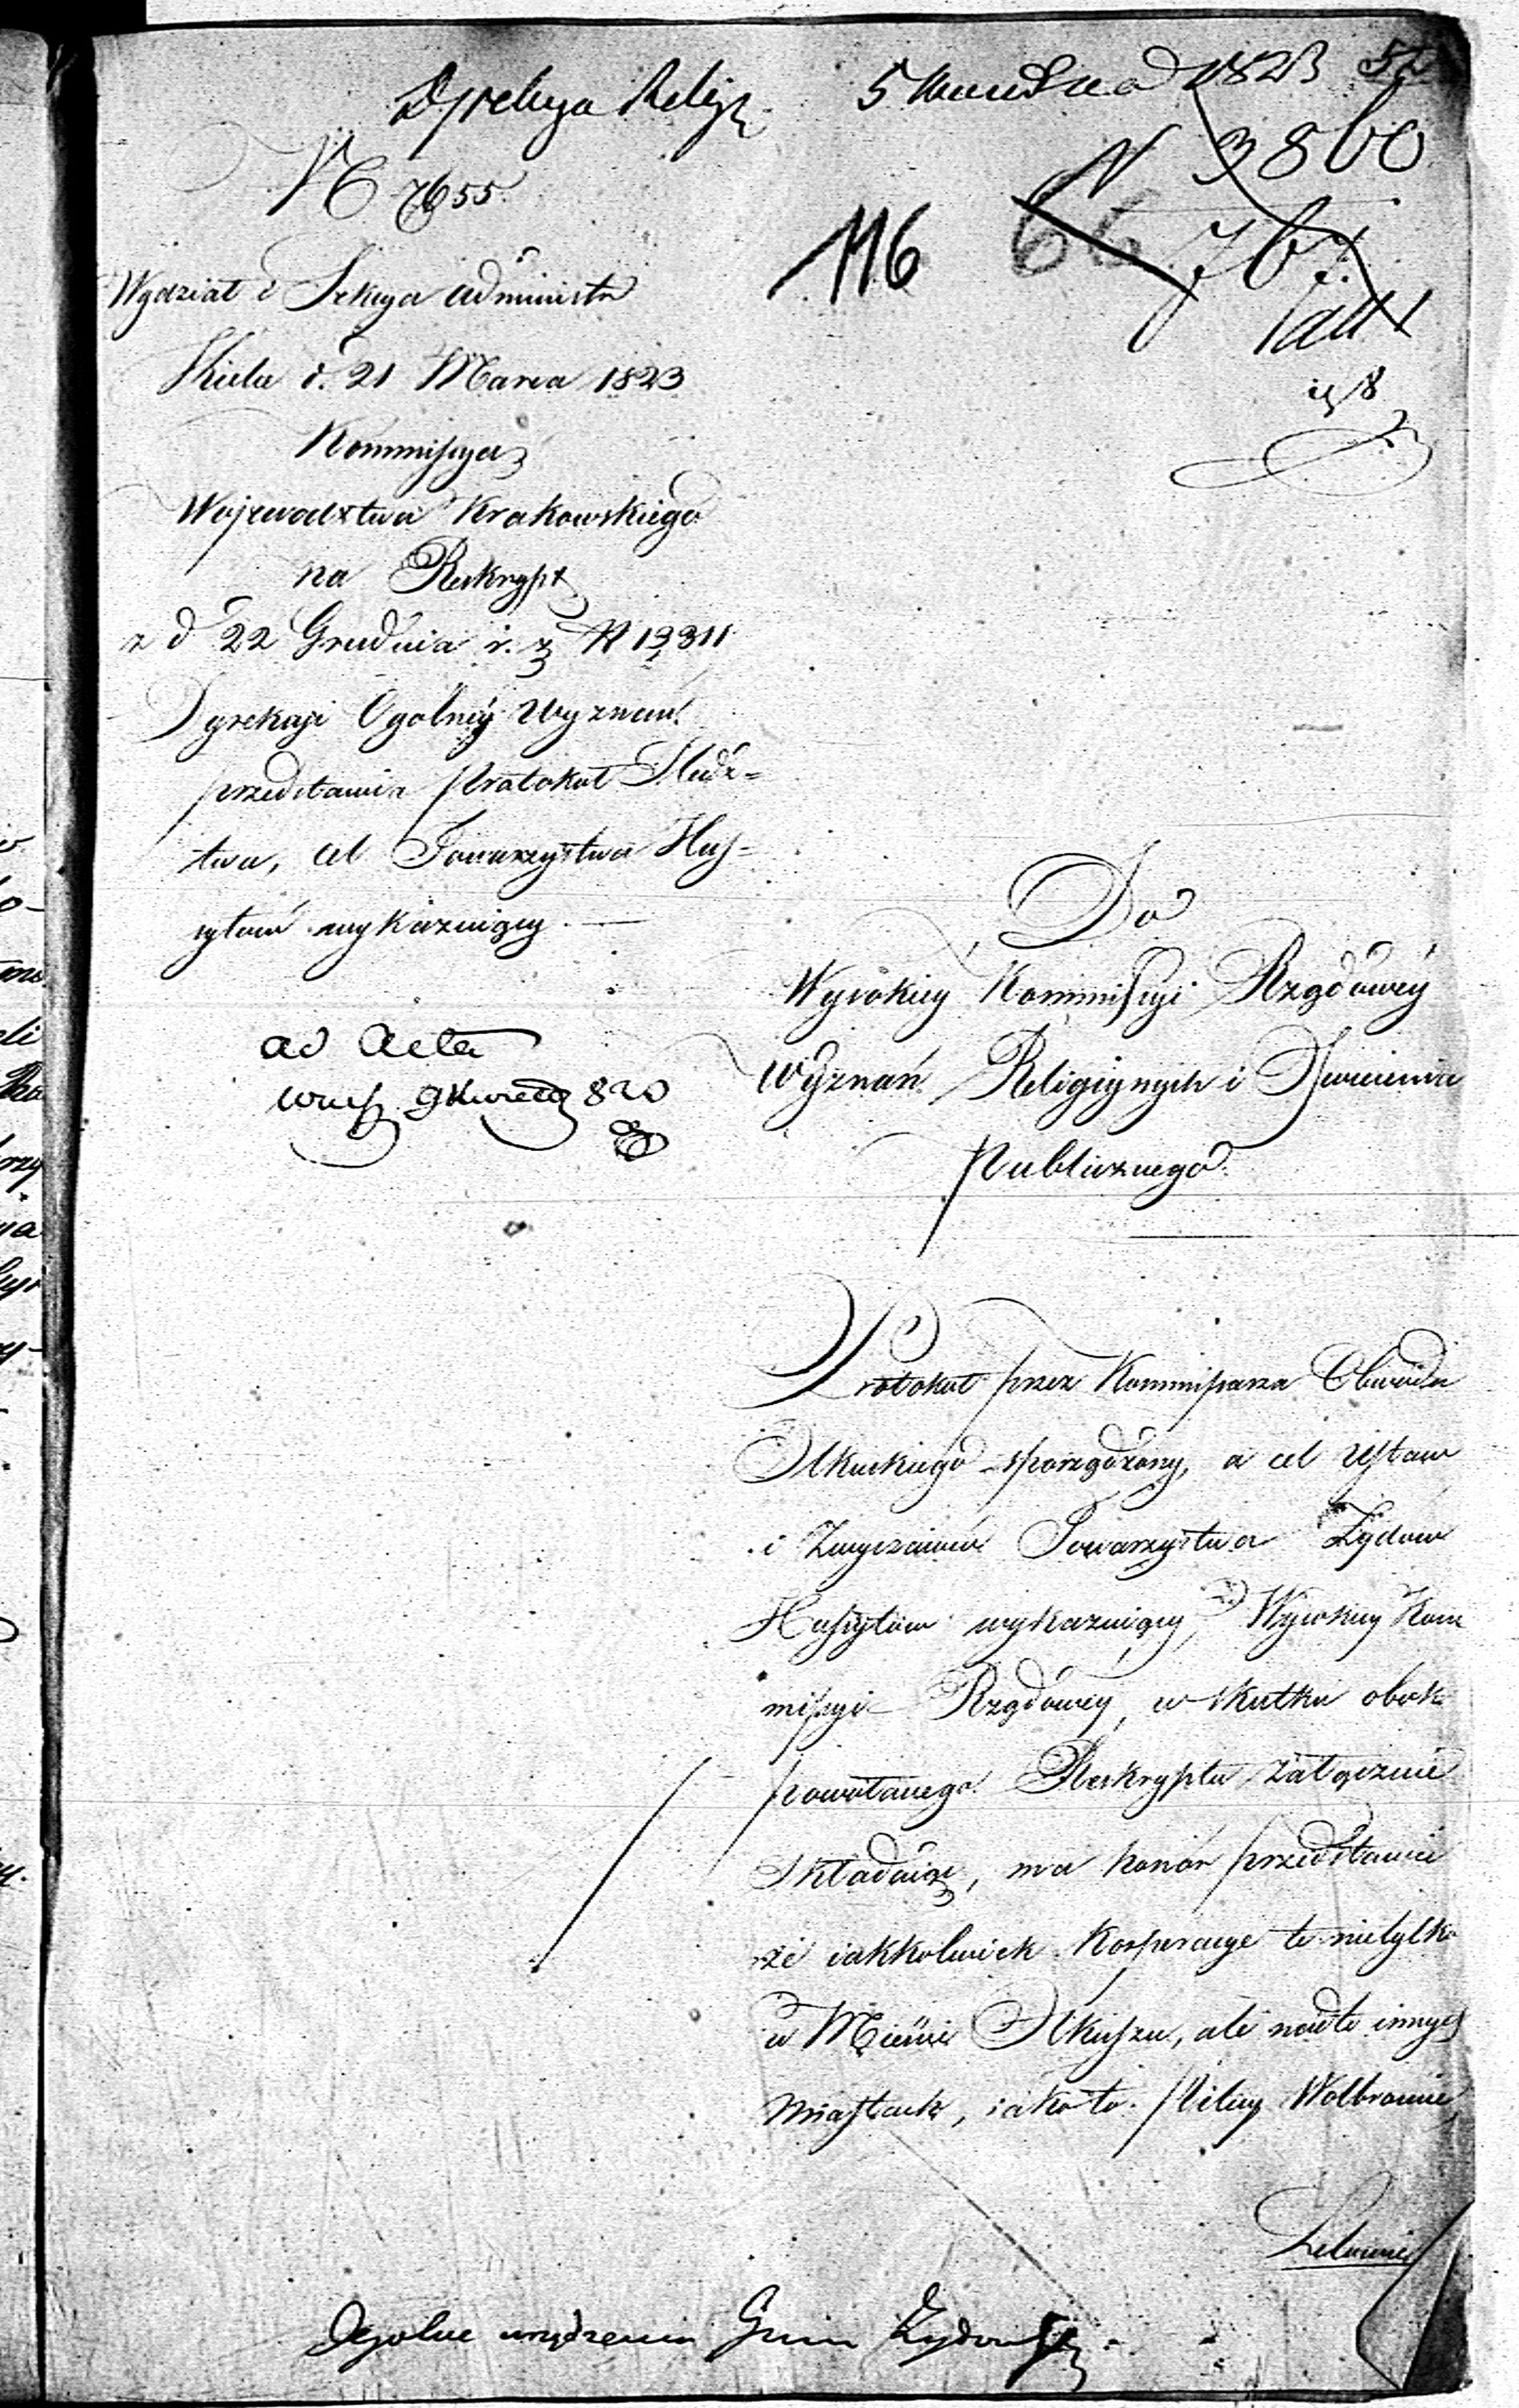 Dyrekcya Relig.
5 Kwietnia 1823 52
N 3860
N 7655
116 66 767
Wydział i Sekcya administr
Kielce d. 21 Marca 1823
Kommissya
Województwa Krakowskiego
na Reskrypt
z d 22 Grudnia r. z N 13311
Dyrekcji Ogólney Wyznań
przedstawia Protokuł Sledz=
twa, cel Towarzystwa Hus=
sytów wykazuiący. —
ad Acta
9 Kwiet 823
Do
Wysokiey Kommissyi Rządowey
Wyznań Religiynych i Oświecenia
Publicznego.
Protokuł przez Kommissarza Obwodu
Olkuskiego sporządzony, a cel Ustaw
i Zwyczaiów Towarzystwa Żydów
Hussytów wykazuiący, Wysokiey Kom
missyi Rządowey, w skutku obok
powołanego Reskryptu załącznie
składaiąc, ma honor przedstawić
że iakkolwiek Korporacye te nietylko
w Mieście Olkuszu, ale nadto innych
Miastach, iako to. Pilicy Wolbromie
Lelowie
Ogolne urządzenia Gmin Żydowskich.